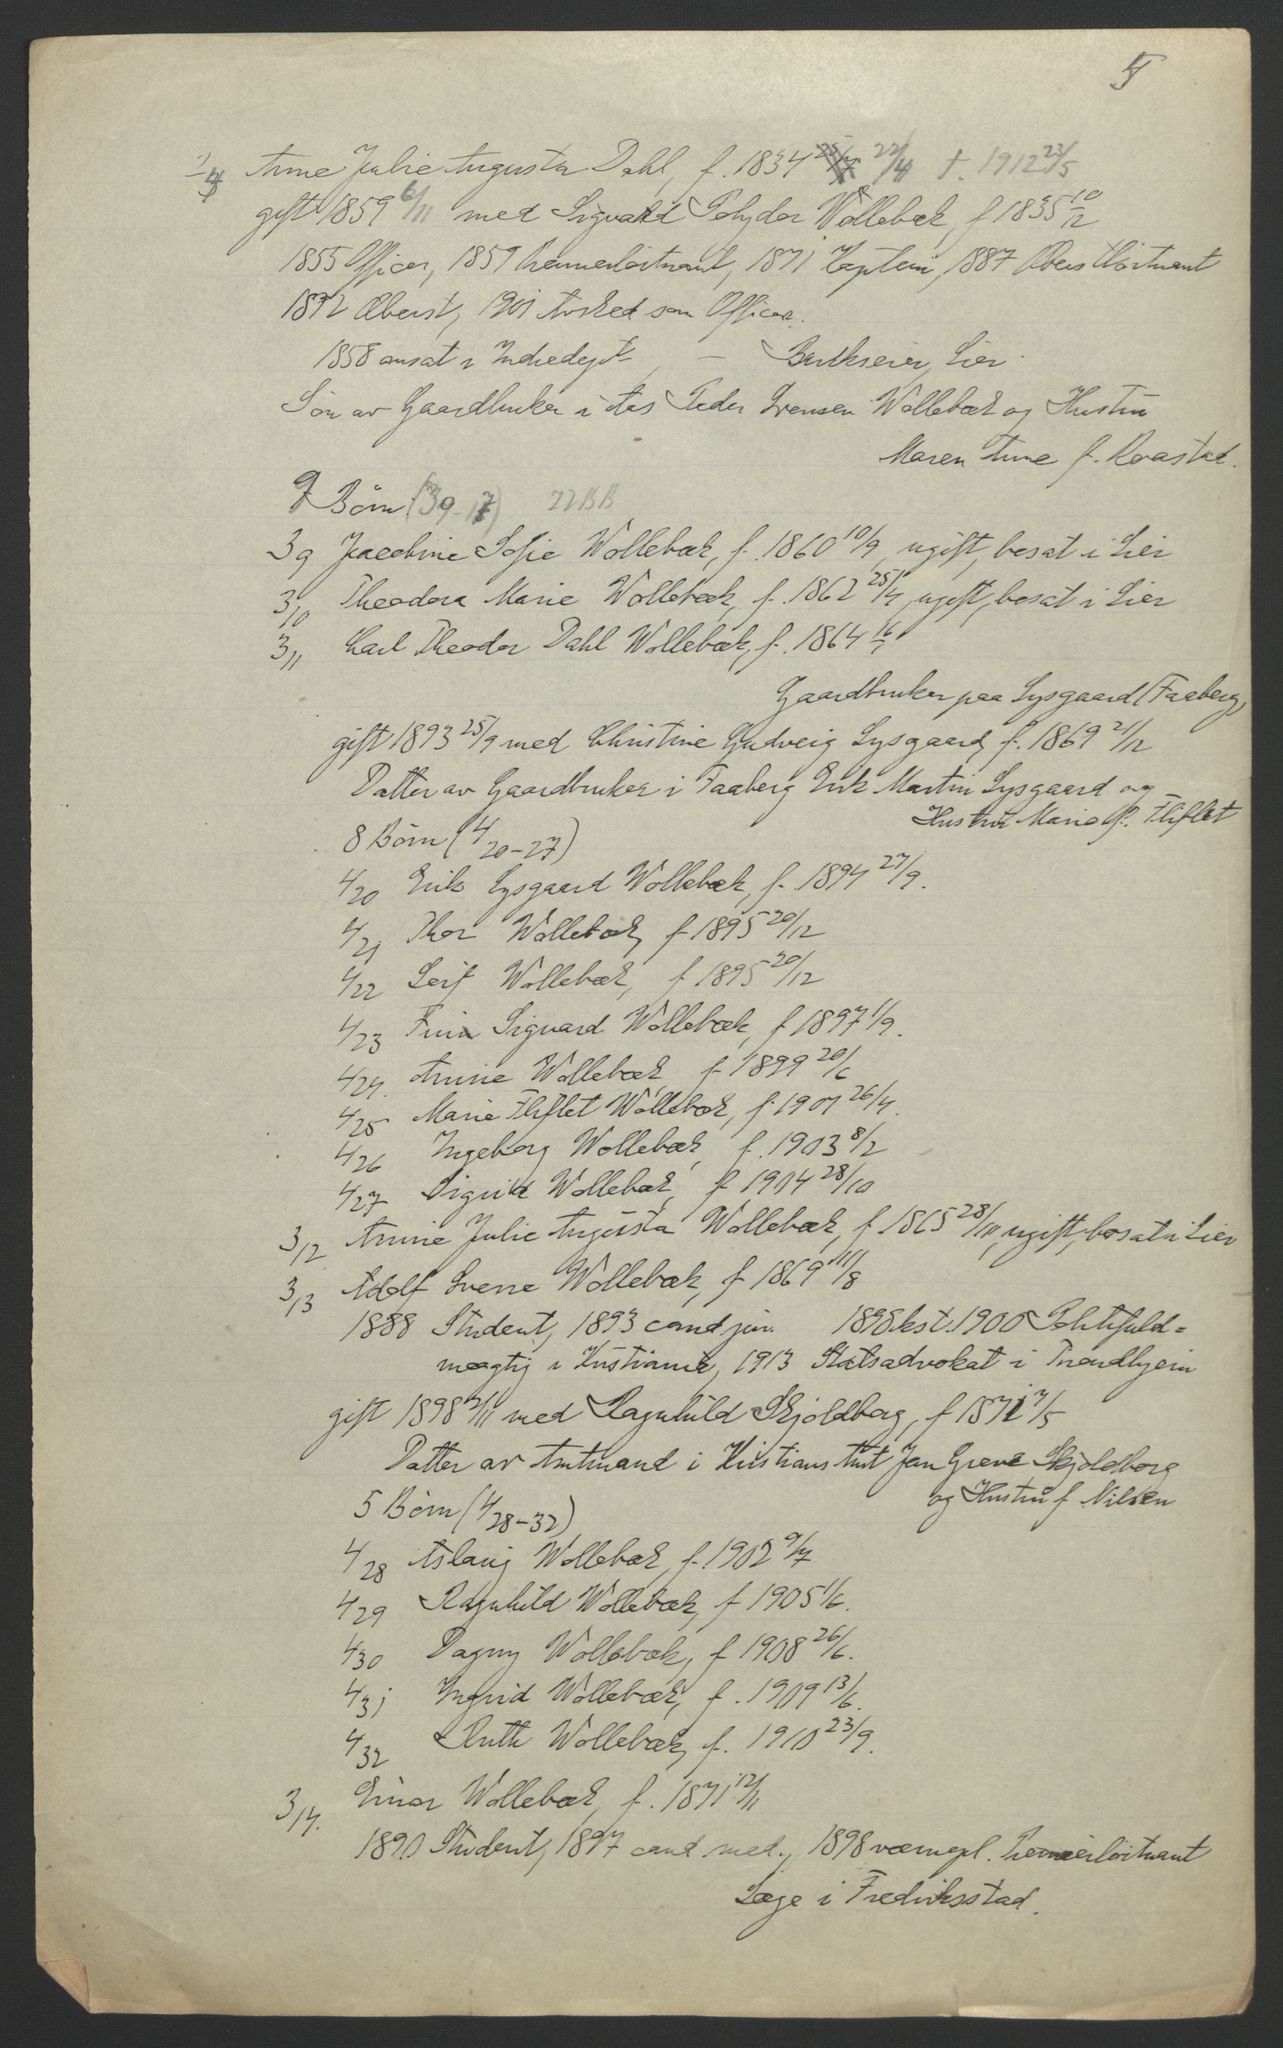 5
2/4 Anne Julie Augusta Dahl, f. 1834 22/4 † 1912 23/5
gift 1859 6/11 med Sigvard Polydor Wollebæk, f 1835 10/12
1855 Officer, 1859 Premierløitnant, 1871 Kaptein, 1887 Oberstløitnant
1892 Oberst, 1901 Avsked som Officer.
1858 ansat i Indredept. — Brukseier, Lier.
Søn av Gaardbruker i Aas Peder Svensen Wollebæk og Hustru
Maren Anne f. Kraastad.
9 Børn (3 9-17) 22 BB
3 9 Jacobine Sofie Wollebæk, f. 1860 10/9, ugift, bosat i Lier
3 10 Theodora Marie Wollebæk, f. 1862 25/4, ugift, bosat i Lier
3 11 Carl Theodor Dahl Wollebæk, f. 1864
Gaardbruker paa Lysgaard (Faaberg)
gift 1893 25/9 med Christine Gudveig Lysgaard, f. 1869 21/12
Datter av Gaardbruker i Faaberg Erik Martin Lysgaard og
Hustru Marie f. Fliflet
8 Børn (4 20-27)
4 20 Erik Lysgaard Wollebæk, f. 1894 27/9.
4 21 Thor Wollebæk, f 1895 20/12
4 22 Leif Wollebæk, f 1895 20/12
4 23 Finn Sigvard Wollebæk, f 1897 1/9.
4 24. Annie Wollebæk f 1899 20/6
4 25 Marie Fliflet Wollebæk, f. 1901 26/4.
4 26 Ingeborg Wollebæk, f. 1903 8/2
4 27 Sigrid Wollebæk, f 1904 28/10
3 12 Annie Julie Augusta Wollebæk, f. 1865 28/10, ugift, bosat i Lier
3 13 Adolf Sverre Wollebæk, f 1869 11/8
1888 Student, 1893 cand jur. 1898 kst. 1900 Politifuld=
mægtig i Kristiania, 1913 Statsadvokat i Trondhjem
gift 1898 med Ragnhild Skjoldborg, f 1871 7/5
Datter av Amtmand i Kristians Amt Jan Greve Skjoldborg
og Hustru f Nilsen
5 Børn (4 28-32)
4 28 Aslaug Wollebæk, f. 1902 9/7
4 29 Ragnhild Wollebæk, f 1905 1/6.
4 30 Dagny Wollebæk, f 1908 26/6.
4 31 Ingrid Wollebæk, f. 1909 13/6.
4 32 Ruth Wollebæk, f. 1910 23/9.
3 14. Einar Wollebæk, f. 1871 12/11
1890 Student, 1897 cand med., 1898 vernepl. Premierløitnant
Læge i Fredriksstad.